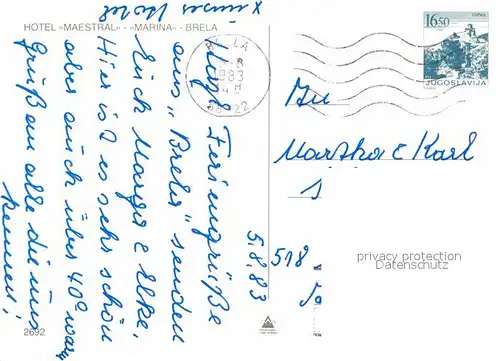 x unser Hotel
HOTEL »MAESTRAL« - »MARINA« - BRELA
Herzl. Feriengrüße
aus "Brela" senden
Euch Marga & Elke.
Hier ist es sehr schön
aber auch über 40° warm
Grüße an alle die uns
kennen!
5.8.83
2692
1983
16.50
JUGOSLAVIJA
An
Martha & Karl
518
privacy protection
Datenschutz